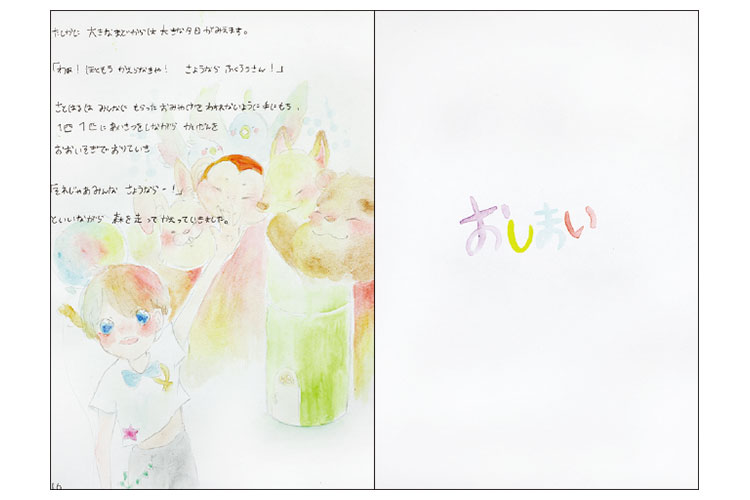 たしかに 大きなまどからは 大きな夕日がみえます。
「わぁ！ ぼくもう かえらなきゃ！ さようなら ふくろうさん！」
さとはるは みんなに もらった おみやげを わすれないように 手にもち、
1匹 1匹に あいさつをしながら かいだんを
おおいそぎで おりていき
「それじゃあ みんな さようならー！」
といいながら 森を走って かえっていきました。
おしまい
16